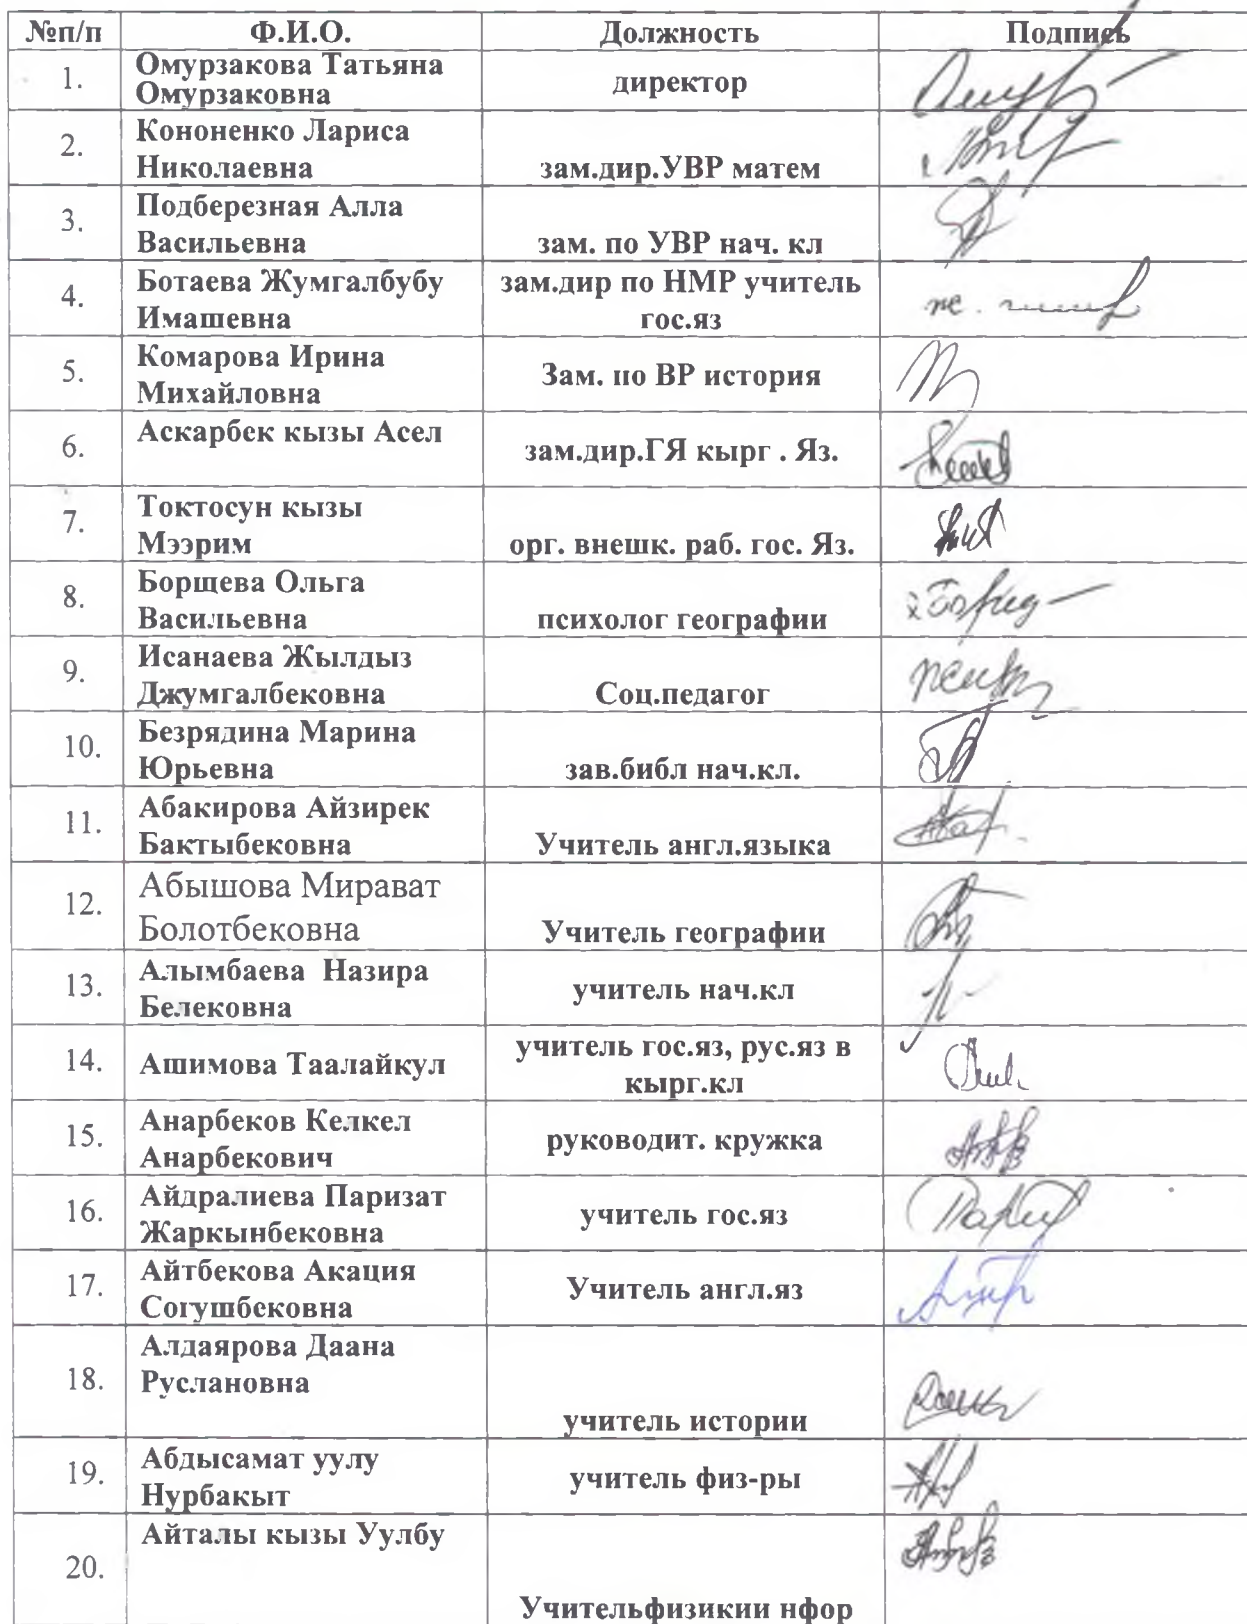 №п/п Ф.И.О. Должность Подпись
1. Омурзакова Татьяна
Омурзаковна
директор
2. Кононенко Лариса
Николаевна
зам.дир.УВР матем
3. Подберезная Алла
Васильевна
зам. по УВР нач. кл
4. Ботаева Жумгалбубу
Имашевна
зам.дир по НМР учитель
гос.яз
5. Комарова Ирина
Михайловна
Зам. по ВР история
6. Аскарбек кызы Асел
зам.дир.ГЯ кырг . Яз.
7. Токтосун кызы
Мээрим
орг. внешк. раб. гос. Яз.
8. Борщева Ольга
Васильевна
психолог географии
9. Исанаева Жылдыз
Джумгалбековна
Соц.педагог
10. Безрядина Марина
Юрьевна
зав.библ нач.кл.
11. Абакирова Айзирек
Бактыбековна
Учитель англ.языка
12. Абышова Мирават
Болотбековна
Учитель географии
13. Алымбаева Назира
Белековна
учитель нач.кл
14. Ашимова Таалайкул
учитель гос.яз, рус.яз в
кырг.кл
15. Анарбеков Келкел
Анарбекович
руководит. кружка
16. Айдралиева Паризат
Жаркынбековна
учитель гос.яз
17. Айтбекова Акация
Согушбековна
Учитель англ.яз
18. Алдаярова Даана
Руслановна
учитель истории
19. Абдысамат уулу
Нурбакыт
учитель физ-ры
20. Айталы кызы Уулбу
Учительфизикии нфор